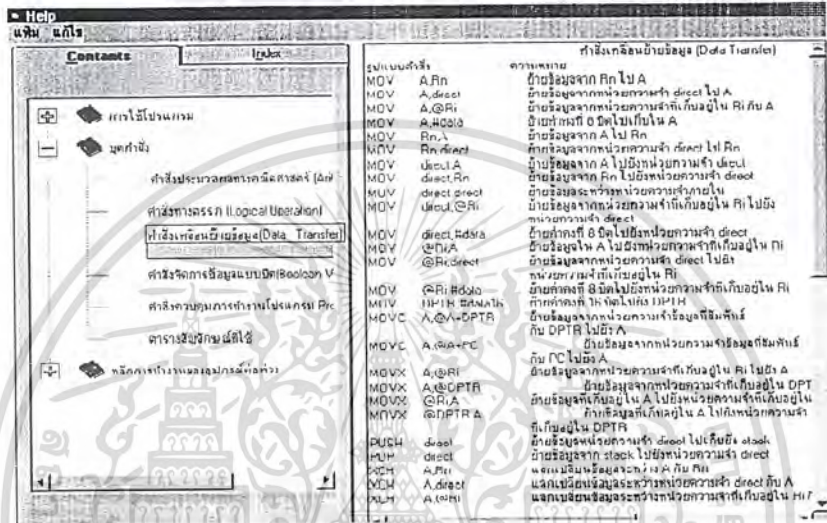 Help
แฟ้ม แก้ไข
Contents
Index
การใช้โปรแกรม
ชุดคำสั่ง
คำสั่งประมวลผลทางคณิตศาสตร์ (Ari
คำสั่งทางตรรก (Logical Operation)
คำสั่งเคลื่อนย้ายข้อมูล(Data Transfer)
คำสั่งจัดการข้อมูลแบบบิต(Boolean V
คำสั่งควบคุมการทำงานโปรแกรม Pro
ตารางสัญลักษณ์ที่ใช้
หลักการทำงานของอุปกรณ์ต่อพ่วง
คำสั่งเคลื่อนย้ายข้อมูล (Data Transfer)
รูปแบบคำสั่ง ความหมาย
MOV A,Rn ย้ายข้อมูลจาก Rn ไป A
MOV A,direct ย้ายข้อมูลจากหน่วยความจำ direct ไป A
MOV A,@Ri ย้ายข้อมูลจากหน่วยความจำที่เก็บอยู่ใน Ri กับ A
MOV A,#data ย้ายค่าคงที่ 8 บิตไปเก็บใน A
MOV Rn,A ย้ายข้อมูลจาก A ไป Rn
MOV Rn,direct ย้ายข้อมูลจากหน่วยความจำ direct ไป Rn
MOV direct,A ย้ายข้อมูลจาก A ไปยังหน่วยความจำ direct
MOV direct,Rn ย้ายข้อมูลจาก Rn ไปยังหน่วยความจำ direct
MOV direct,direct ย้ายข้อมูลระหว่างหน่วยความจำภายใน
MOV direct,@Ri ย้ายข้อมูลจากหน่วยความจำที่เก็บอยู่ใน Ri ไปยัง
หน่วยความจำ direct
MOV direct,#data ย้ายค่าคงที่ 8 บิตไปยังหน่วยความจำ direct
MOV @Ri,A ย้ายข้อมูลใน A ไปยังหน่วยความจำที่เก็บอยู่ใน Ri
MOV @Ri,direct ย้ายข้อมูลจากหน่วยความจำ direct ไปยัง
หน่วยความจำที่เก็บอยู่ใน Ri
MOV @Ri,#data ย้ายค่าคงที่ 8 บิตไปยังหน่วยความจำที่เก็บอยู่ใน Ri
MOV DPTR,#data16 ย้ายค่าคงที่ 16 บิตไปยัง DPTR
MOVC A,@A+DPTR ย้ายข้อมูลจากหน่วยความจำข้อมูลที่สัมพันธ์
กับ DPTR ไปยัง A
MOVC A,@A+PC ย้ายข้อมูลจากหน่วยความจำข้อมูลที่สัมพันธ์
กับ PC ไปยัง A
MOVX A,@Ri ย้ายข้อมูลจากหน่วยความจำที่เก็บอยู่ใน Ri ไปยัง A
MOVX A,@DPTR ย้ายข้อมูลจากหน่วยความจำที่เก็บอยู่ใน DPT
MOVX @Ri,A ย้ายข้อมูลที่เก็บอยู่ใน A ไปยังหน่วยความจำที่เก็บอยู่ใน Ri
MOVX @DPTR,A ย้ายข้อมูลที่เก็บอยู่ใน A ไปยังหน่วยความจำ
ที่เก็บอยู่ใน DPTR
PUSH direct ย้ายข้อมูลหน่วยความจำ direct ไปเก็บยัง stack
POP direct ย้ายข้อมูลจาก stack ไปยังหน่วยความจำ direct
XCH A,Rn แลกเปลี่ยนข้อมูลระหว่าง A กับ Rn
XCH A,direct แลกเปลี่ยนข้อมูลระหว่างหน่วยความจำ direct กับ A
XCH A,@Ri แลกเปลี่ยนข้อมูลระหว่างหน่วยความจำที่เก็บอยู่ใน Ri